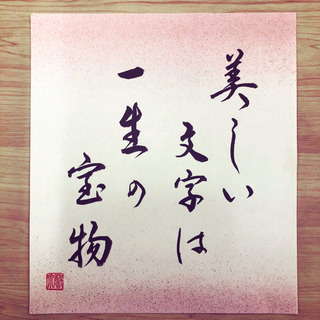 美しい
文字は
一生の
宝物